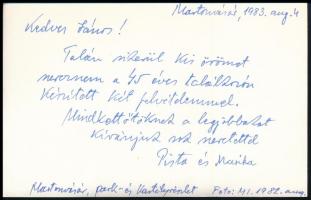 Martonvásár, 1983. aug. 4
Kedves János!
Talán sikerül kis örömet
szereznem a 45 éves találkozón
készített két felvételemmel.
Mindkettőtöknek a legjobbakat
kívánjuk sok szeretettel
Pista és Marika
Martonvásár, park- és kastélyrészlet Foto: M.I. 1982. aug.